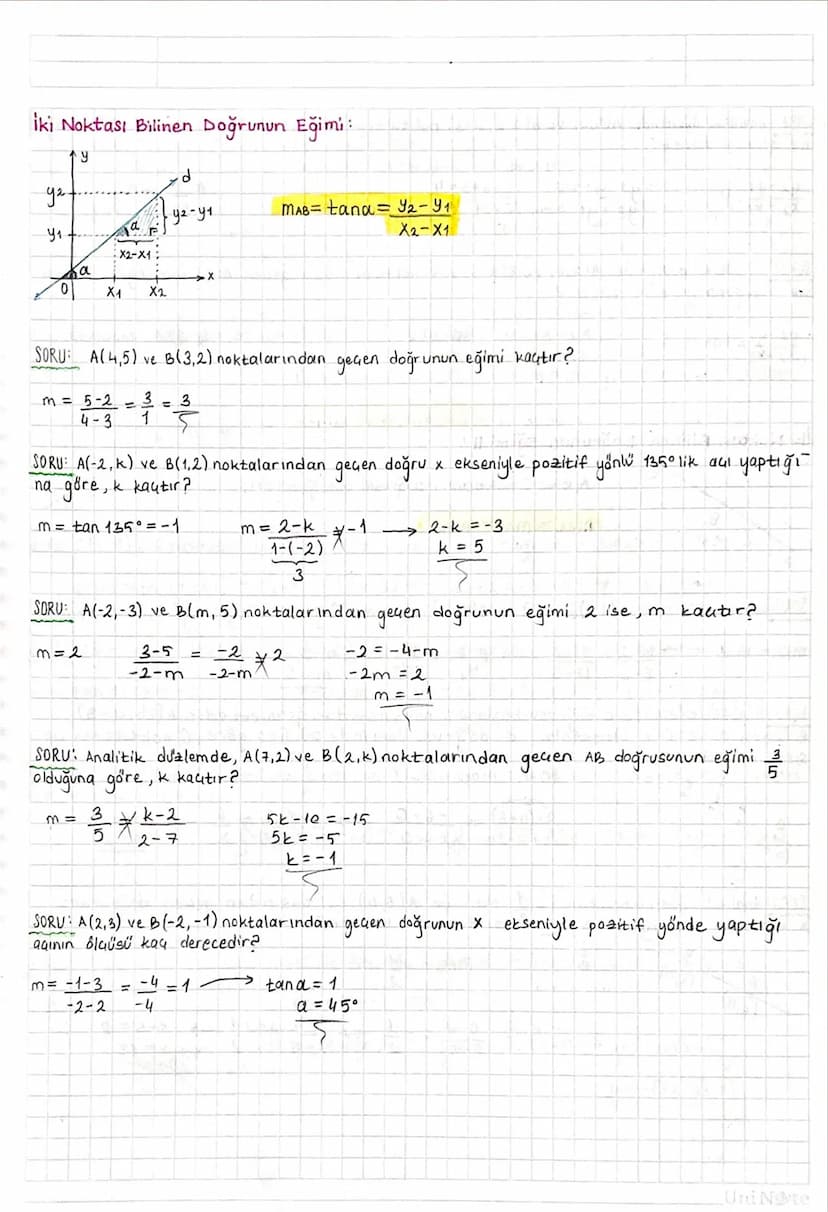 İki Noktası Bilinen Doğrunun Eğimi:
y
d
y2
y1
y2-y1
a
x2-x1
a
0
x1
x2
x
mAB = tana = y2-y1 / x2-x1
SORU: A(4,5) ve B(3,2) noktalarından geçen doğrunun eğimi kaçtır?
m = 5-2 / 4-3 = 3/1 = 3
SORU: A(-2,k) ve B(1,2) noktalarından geçen doğru x ekseniyle pozitif yönlü 135° lik açı yaptığı-
na göre, k kaçtır?
m = tan 135° = -1
m = 2-k / 1-(-2) = -1 → 2-k = -3
3
k = 5
SORU: A(-2,-3) ve B(m,5) noktalarından geçen doğrunun eğimi 2 ise, m kaçtır?
m = 2
3-5 / -2-m = -2 / -2-m = 2
-2 = -4-m
-2m = 2
m = -1
SORU: Analitik düzlemde, A(7,2) ve B(2,k) noktalarından geçen AB doğrusunun eğimi 3/5
olduğuna göre, k kaçtır?
m = 3/5 = k-2 / 2-7
5k-10 = -15
5k = -5
k = -1
SORU: A(2,3) ve B(-2,-1) noktalarından geçen doğrunun x ekseniyle pozitif yönde yaptığı
açının ölçüsü kaç derecedir?
m = -1-3 / -2-2 = -4 / -4 = 1 → tana = 1
a = 45°
UniNote